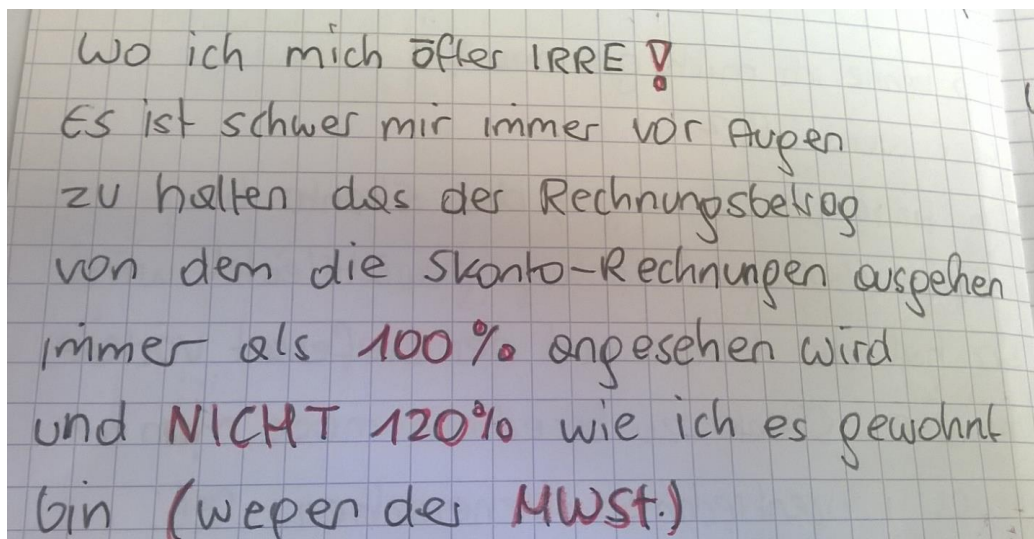 Wo ich mich öfter IRRE!
Es ist schwer mir immer vor Augen
zu halten das der Rechnungsbetrag
von dem die Skonto-Rechnungen ausgehen
immer als 100% angesehen wird
und NICHT 120% wie ich es gewohnt
bin (wegen der MWSt.)